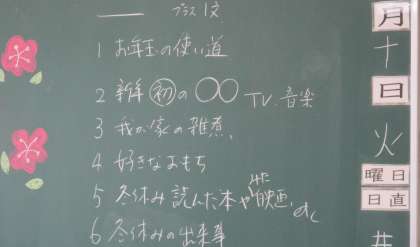 プラス1文
1 お年玉の使い道
2 新年 初の○○ TV. 音楽
3 我が家の雑煮、
4 好きなおもち
5 冬休み読んだ本や 映画
6 冬休みの出来事
月
十
日
火
曜日
日直